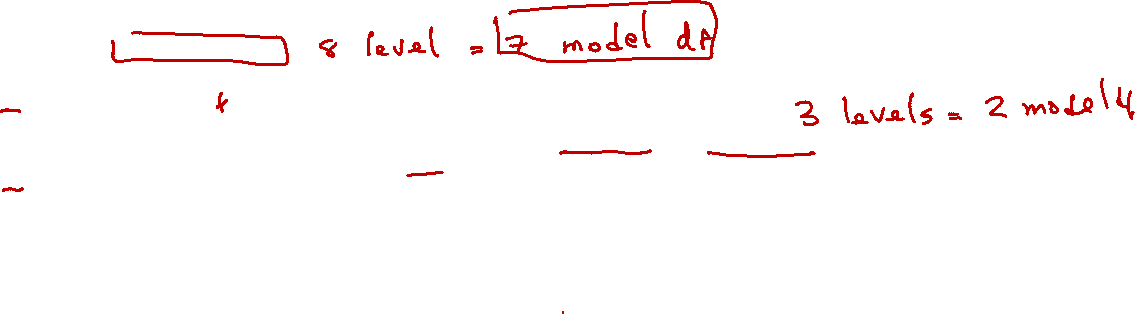 8 level = 7 model df
3 levels = 2 model